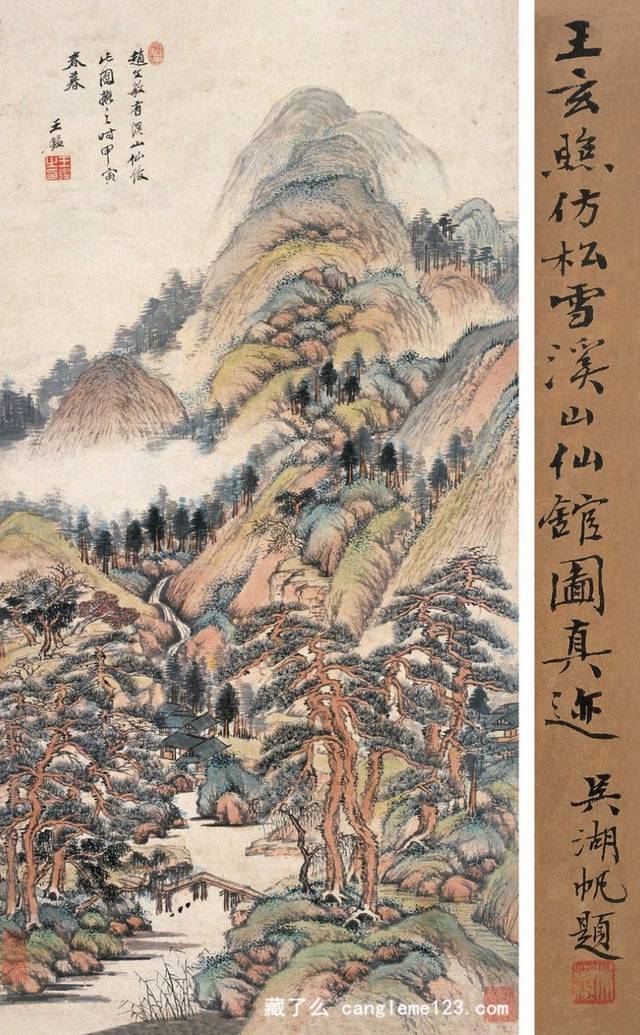 王玄照仿松雪溪山仙館圖真迹
吳湖帆題
趙文敏有溪山仙館
此圖擬之時甲寅
春暮
王鑑
藏了么 cangleme123.com